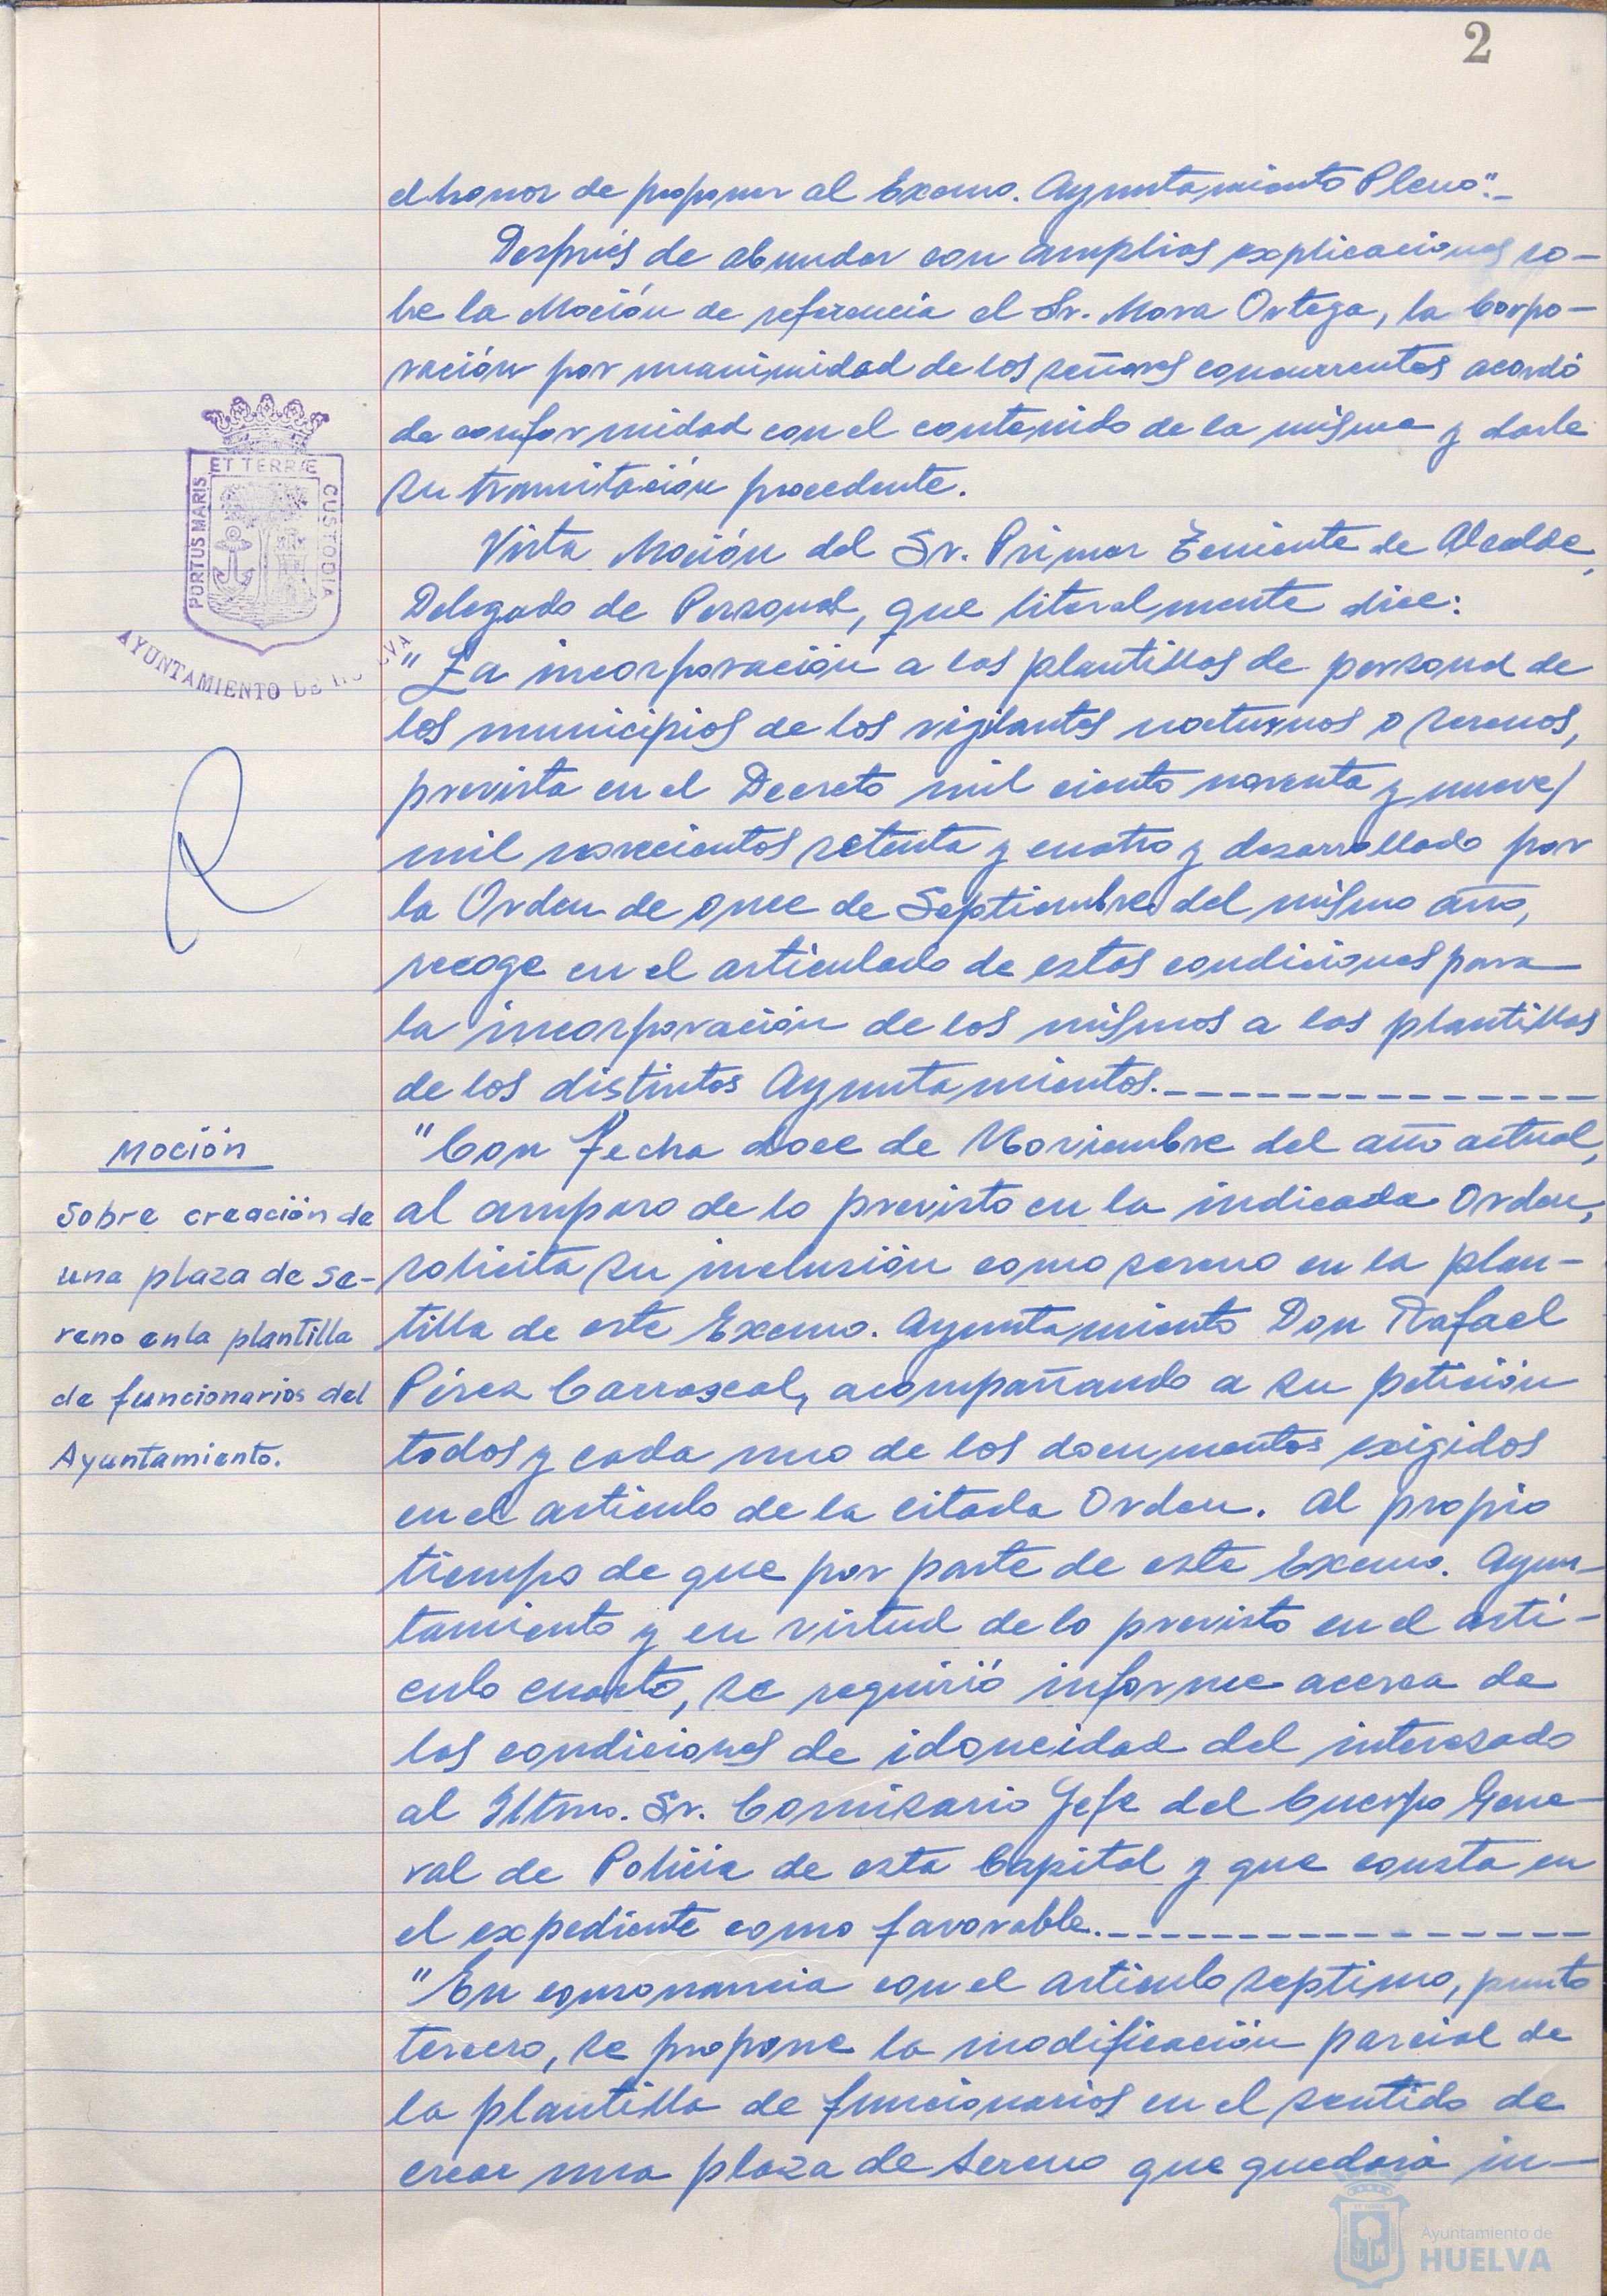 2
el honor de proponer al Excmo. Ayuntamiento Pleno".-
Después de abundar con amplias explicaciones so-
bre la Moción de referencia el Sr. Mora Ortega, la Corpo-
ración por unanimidad de los señores concurrentes acordó
de conformidad con el contenido de la misma y darle
su tramitación procedente.
Vista Moción del Sr. Primer Teniente de Alcalde,
Delegado de Personal, que literalmente dice:
"La incorporación a las plantillas de personal de
los municipios de los vigilantes nocturnos o serenos,
prevista en el Decreto mil ciento noventa y nueve/
mil novecientos setenta y cuatro y desarrollado por
la Orden de once de Septiembre del mismo año,
recoge en el articulado de estas condiciones para
la incorporación de los mismos a las plantillas
de los distintos Ayuntamientos.---------------
"Con fecha doce de Noviembre del año actual,
al amparo de lo previsto en la indicada Orden,
solicita su inclusión como sereno en la plan-
tilla de este Excmo. Ayuntamiento Don Rafael
Pérez Carrascal, acompañando a su petición
todos y cada uno de los documentos exigidos
en el artículo de la citada Orden. Al propio
tiempo de que por parte de este Excmo. Ayun-
tamiento y en virtud de lo previsto en el artí-
culo cuarto, se requirió informe acerca de
las condiciones de idoneidad del interesado
al Iltmo. Sr. Comisario Jefe del Cuerpo Gene-
ral de Policía de esta Capital y que consta en
el expediente como favorable.----------------
"En consonancia con el artículo septimo, punto
tercero, se propone la modificación parcial de
la plantilla de funcionarios en el sentido de
crear una plaza de Sereno que quedará in-
ET TERRÆ
PORTUS MARIS
CUSTODIA
AYUNTAMIENTO DE HUELVA
Moción
Sobre creación de
una plaza de Se-
reno en la plantilla
de funcionarios del
Ayuntamiento.
Ayuntamiento de
HUELVA